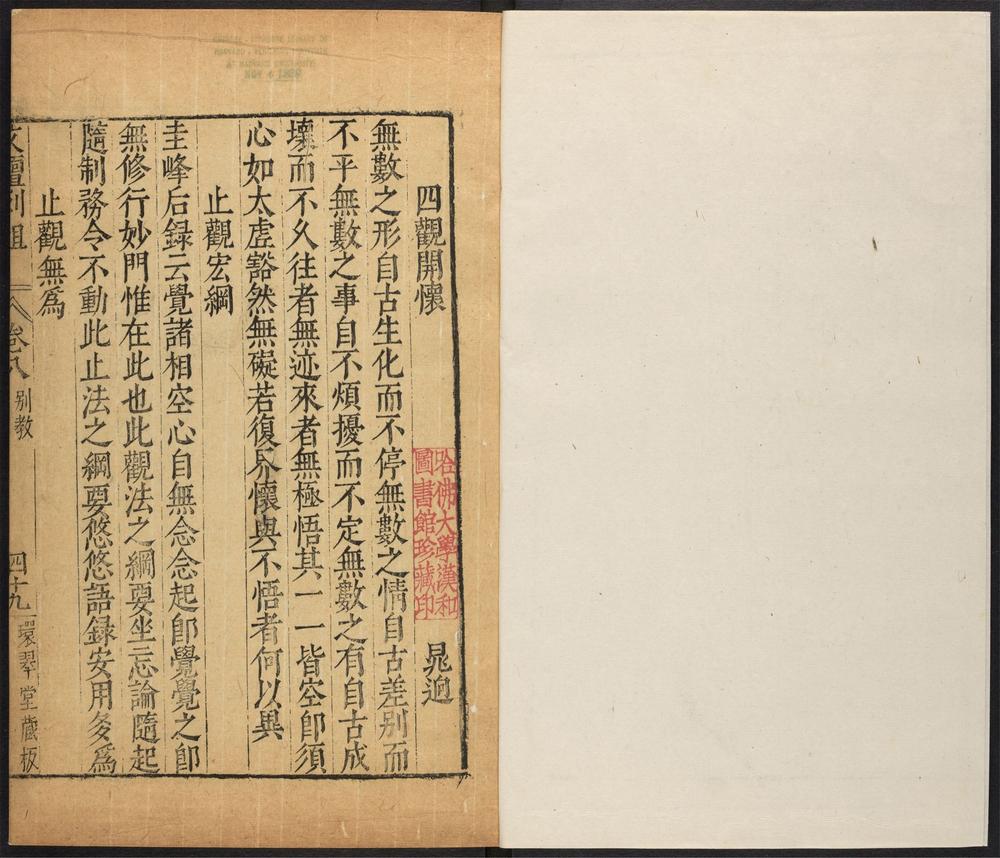 四觀開懷　晁迥
無數之形自古生化而不停無數之情自古差别而
不平無數之事自不煩擾而不定無數之有自古成
壞而不久往者無迹來者無極悟其一一皆空卽須
心如太虛豁然無礙若復界懷與不悟者何以異
止觀宏綱
圭峰后録云覺諸相空心自無念念起卽覺覺之卽
無修行妙門惟在此也此觀法之綱要坐忘論隨起
隨制務令不動此止法之綱要悠悠語録安用多爲
止觀無爲
文壇列俎　卷八　别教　四十九　環翠堂藏板
哈佛大學漢和
圖書館珍藏印